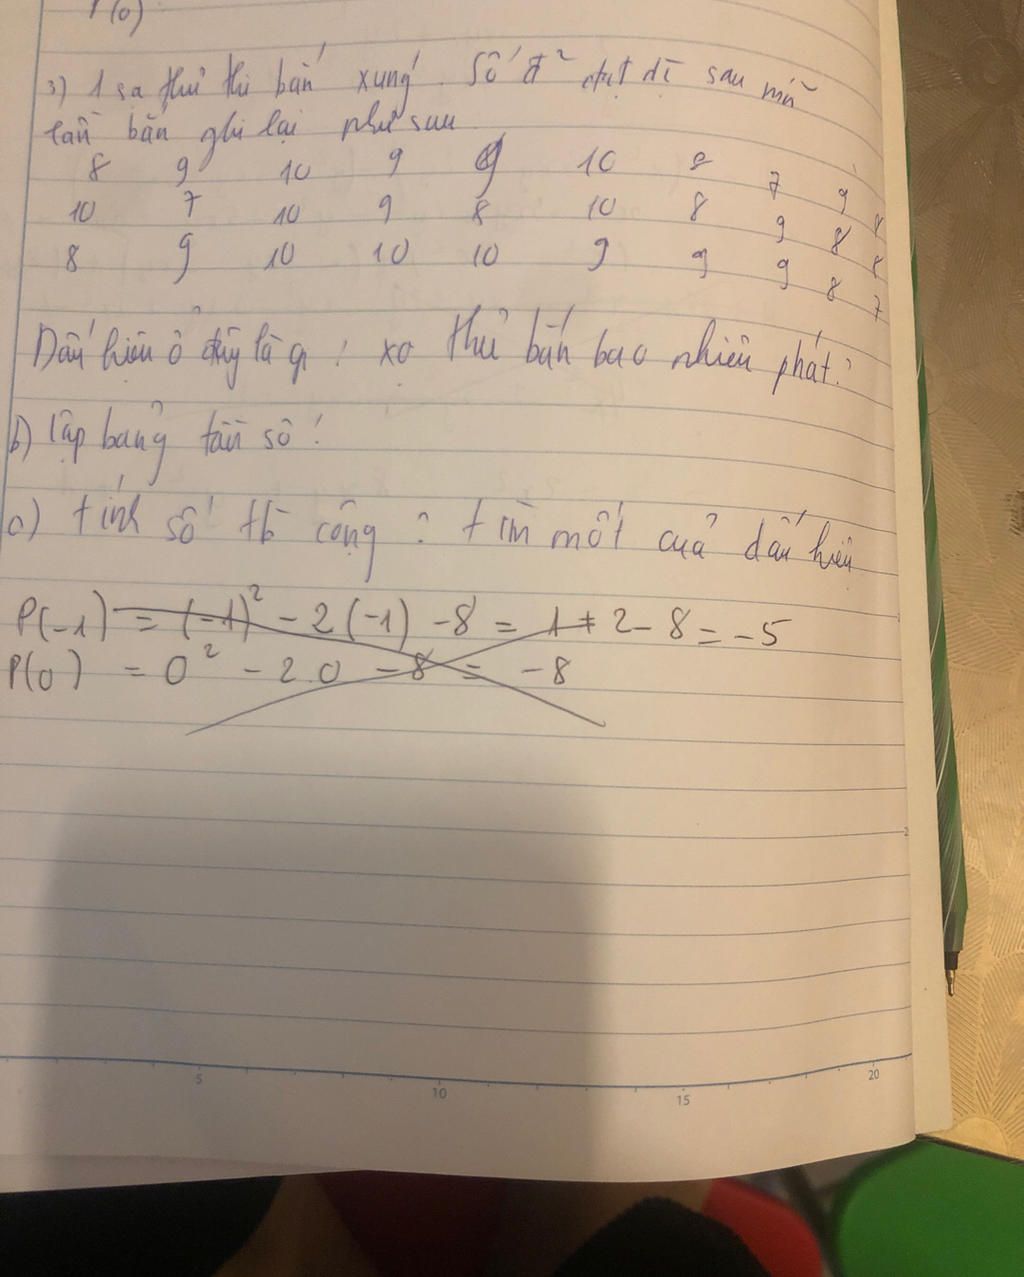 P(0)
3) 1 xạ thủ thi bắn xung. Số đ² đạt đc̀ sau mỗi
lần bắn ghi lại như sau
8 9 10 9 9 10 8 7 9 8
10 7 10 9 8 10 8 9 8 8
8 9 10 10 10 9 9 9 8 7
Dấu hiệu ở đây là gì? xạ thủ bắn bao nhiêu phát?
b) lập bảng tần số!
c) tính số tb cộng? tìm mốt của dấu hiệu
P(-1) = (-1)² - 2(-1) - 8 = 1 + 2 - 8 = -5
P(0) = 0² - 2.0 - 8 = -8
5 10 15 20